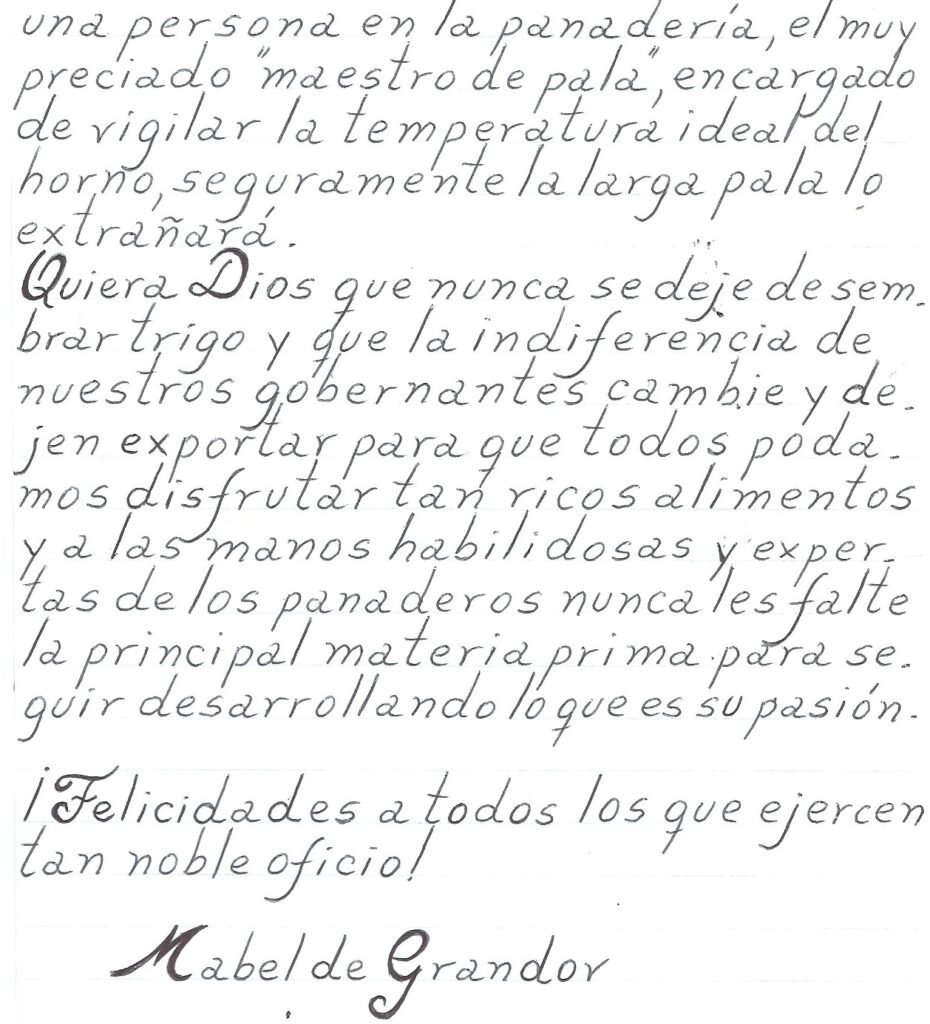 una persona en la panadería, el muy
preciado "maestro de pala", encargado
de vigilar la temperatura ideal del
horno, seguramente la larga pala lo
extrañará.
Quiera Dios que nunca se deje de sem-
brar trigo y que la indiferencia de
nuestros gobernantes cambie y de-
jen exportar para que todos poda-
mos disfrutar tan ricos alimentos
y a las manos habilidosas y exper-
tas de los panaderos nunca les falte
la principal materia prima para se-
guir desarrollando lo que es su pasión.
¡Felicidades a todos los que ejercen
tan noble oficio!
Mabel de Grandor